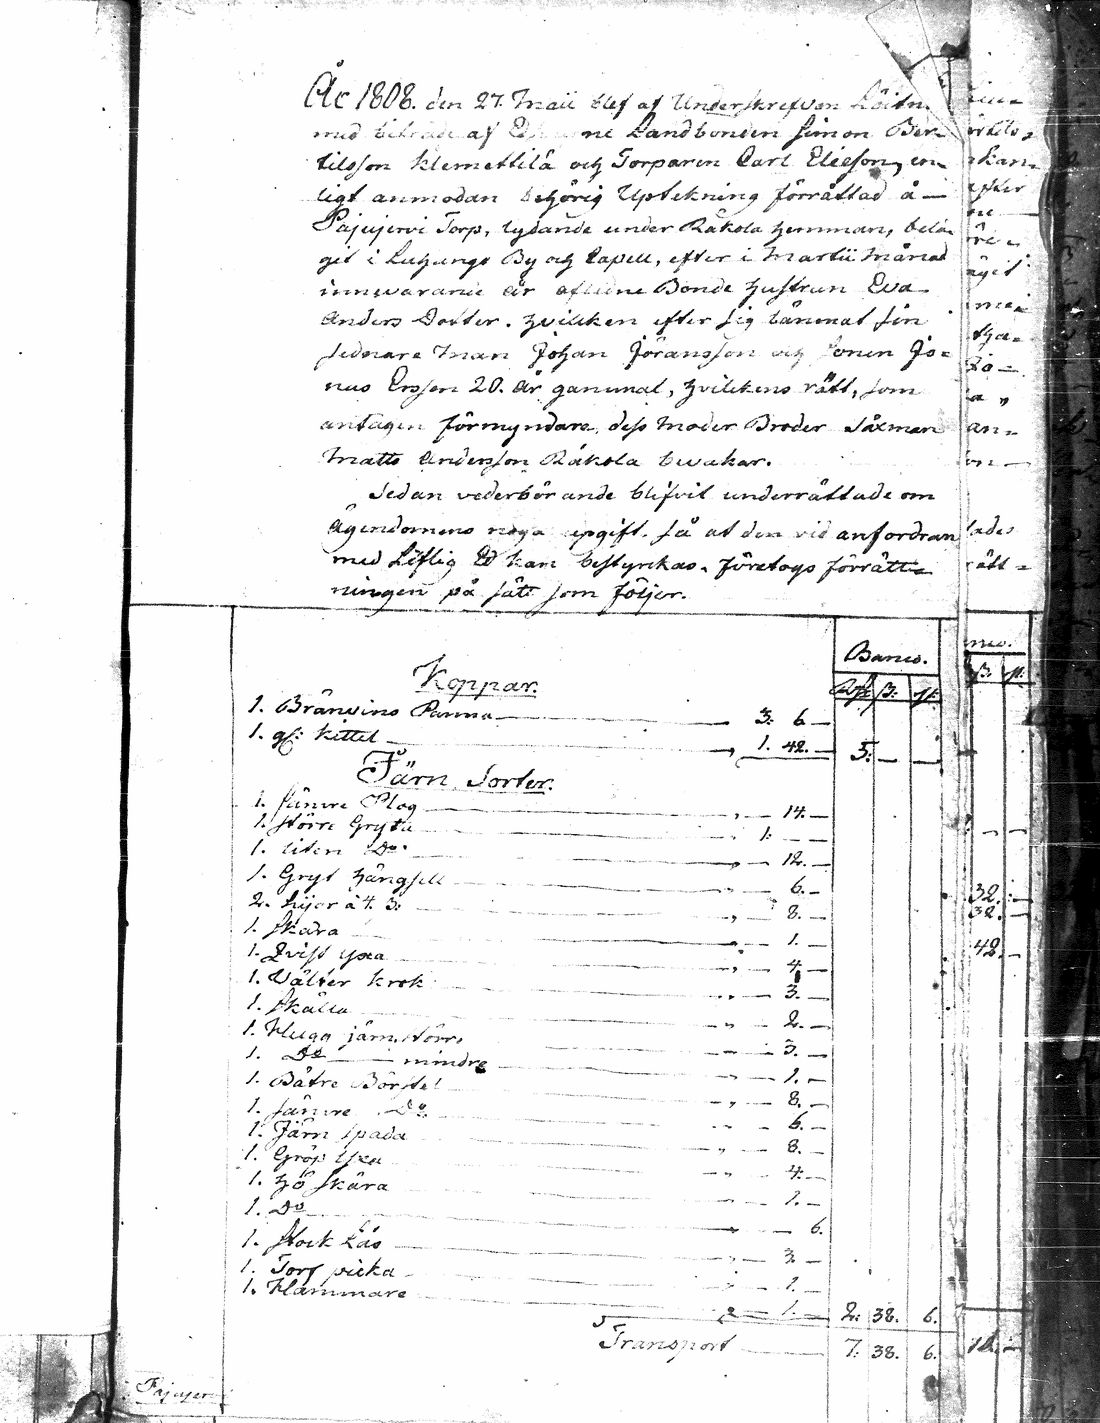 År 1808. den 27. Maii blef af Underskrefven Löitn.
med biträde af Landbonden Simon Ber-
tilsson Klemettilä och Torparen Carl Elieson, en-
ligt anmodan behörig Uptekning förrättad å
Pajujervi Torp, lydande under Räkola hemman, belä-
git i Luhango By och Capell, efter i Martii Månad
innevarande år aflidne Bonde hustrun Eva
Anders Dotter. hvilken efter sig lämnat sin
sednare Man Johan Jöransson och Sonen Jo-
nas Ersson 20. år gammal, hvilkens rätt, som
antagen förmyndare, dess Moder Broder Såxman
Matts Andersson Räkola bevakar.
Sedan vederbörande blifvit underrättade om
ägendomens noga upgift. så at den vid anfordran
med Liflig Ed kan bestyrkas, företogs förrätt-
ningen på sätt som följer.
Banco.
Rdr ß: rst.
Koppar.
1. Bränvins Panna — 3. 6.—
1. gl: kittel — 1. 42.— 5. — —
Järn Sorter.
1. sämre Plog — 14.—
1. större Gryta — 1.
1. liten Do. — 12.—
1. Gryt hängsell — 6.—
2. Lijor à 4. ß: — 8.—
1. skära — 1.—
1. Qvist yxa — 4.—
1. Välter krok — 3.—
1. skålla — 2.—
1. Hugg järn, större — 3.—
1. Do — mindre — 1.—
1. Bätre Börstel — 8.—
1. sämre Do. — 6.—
1. Järn spada — 8.—
1. Gröp yxa — 4.—
1. hö skära — 1.—
1. Do — 6.
1. Stock Lås — 3.—
1. Torf picka — 1.—
1. Hammare — 1.— 2. 38. 6.
Transport — 7. 38. 6.
32.
32.
42.